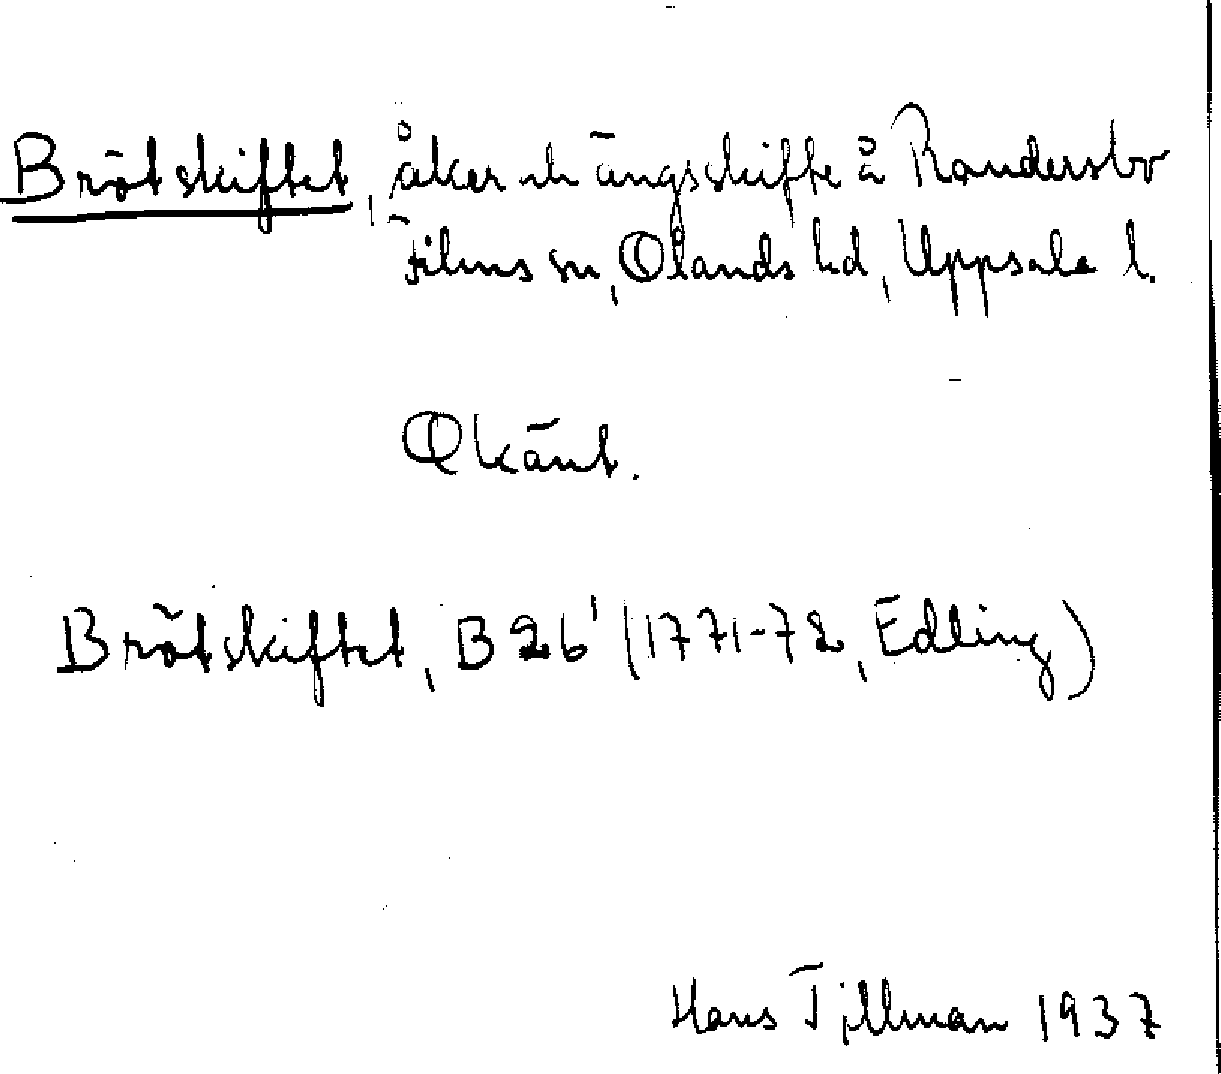 Brötskiftet, åker ch ängsskifte å Randersbo
Films sn, Olands hd, Uppsala l.
Okänt.
Brötskiftet, B 26¹ (1771-72, Edling)
Hans Tillman 1937